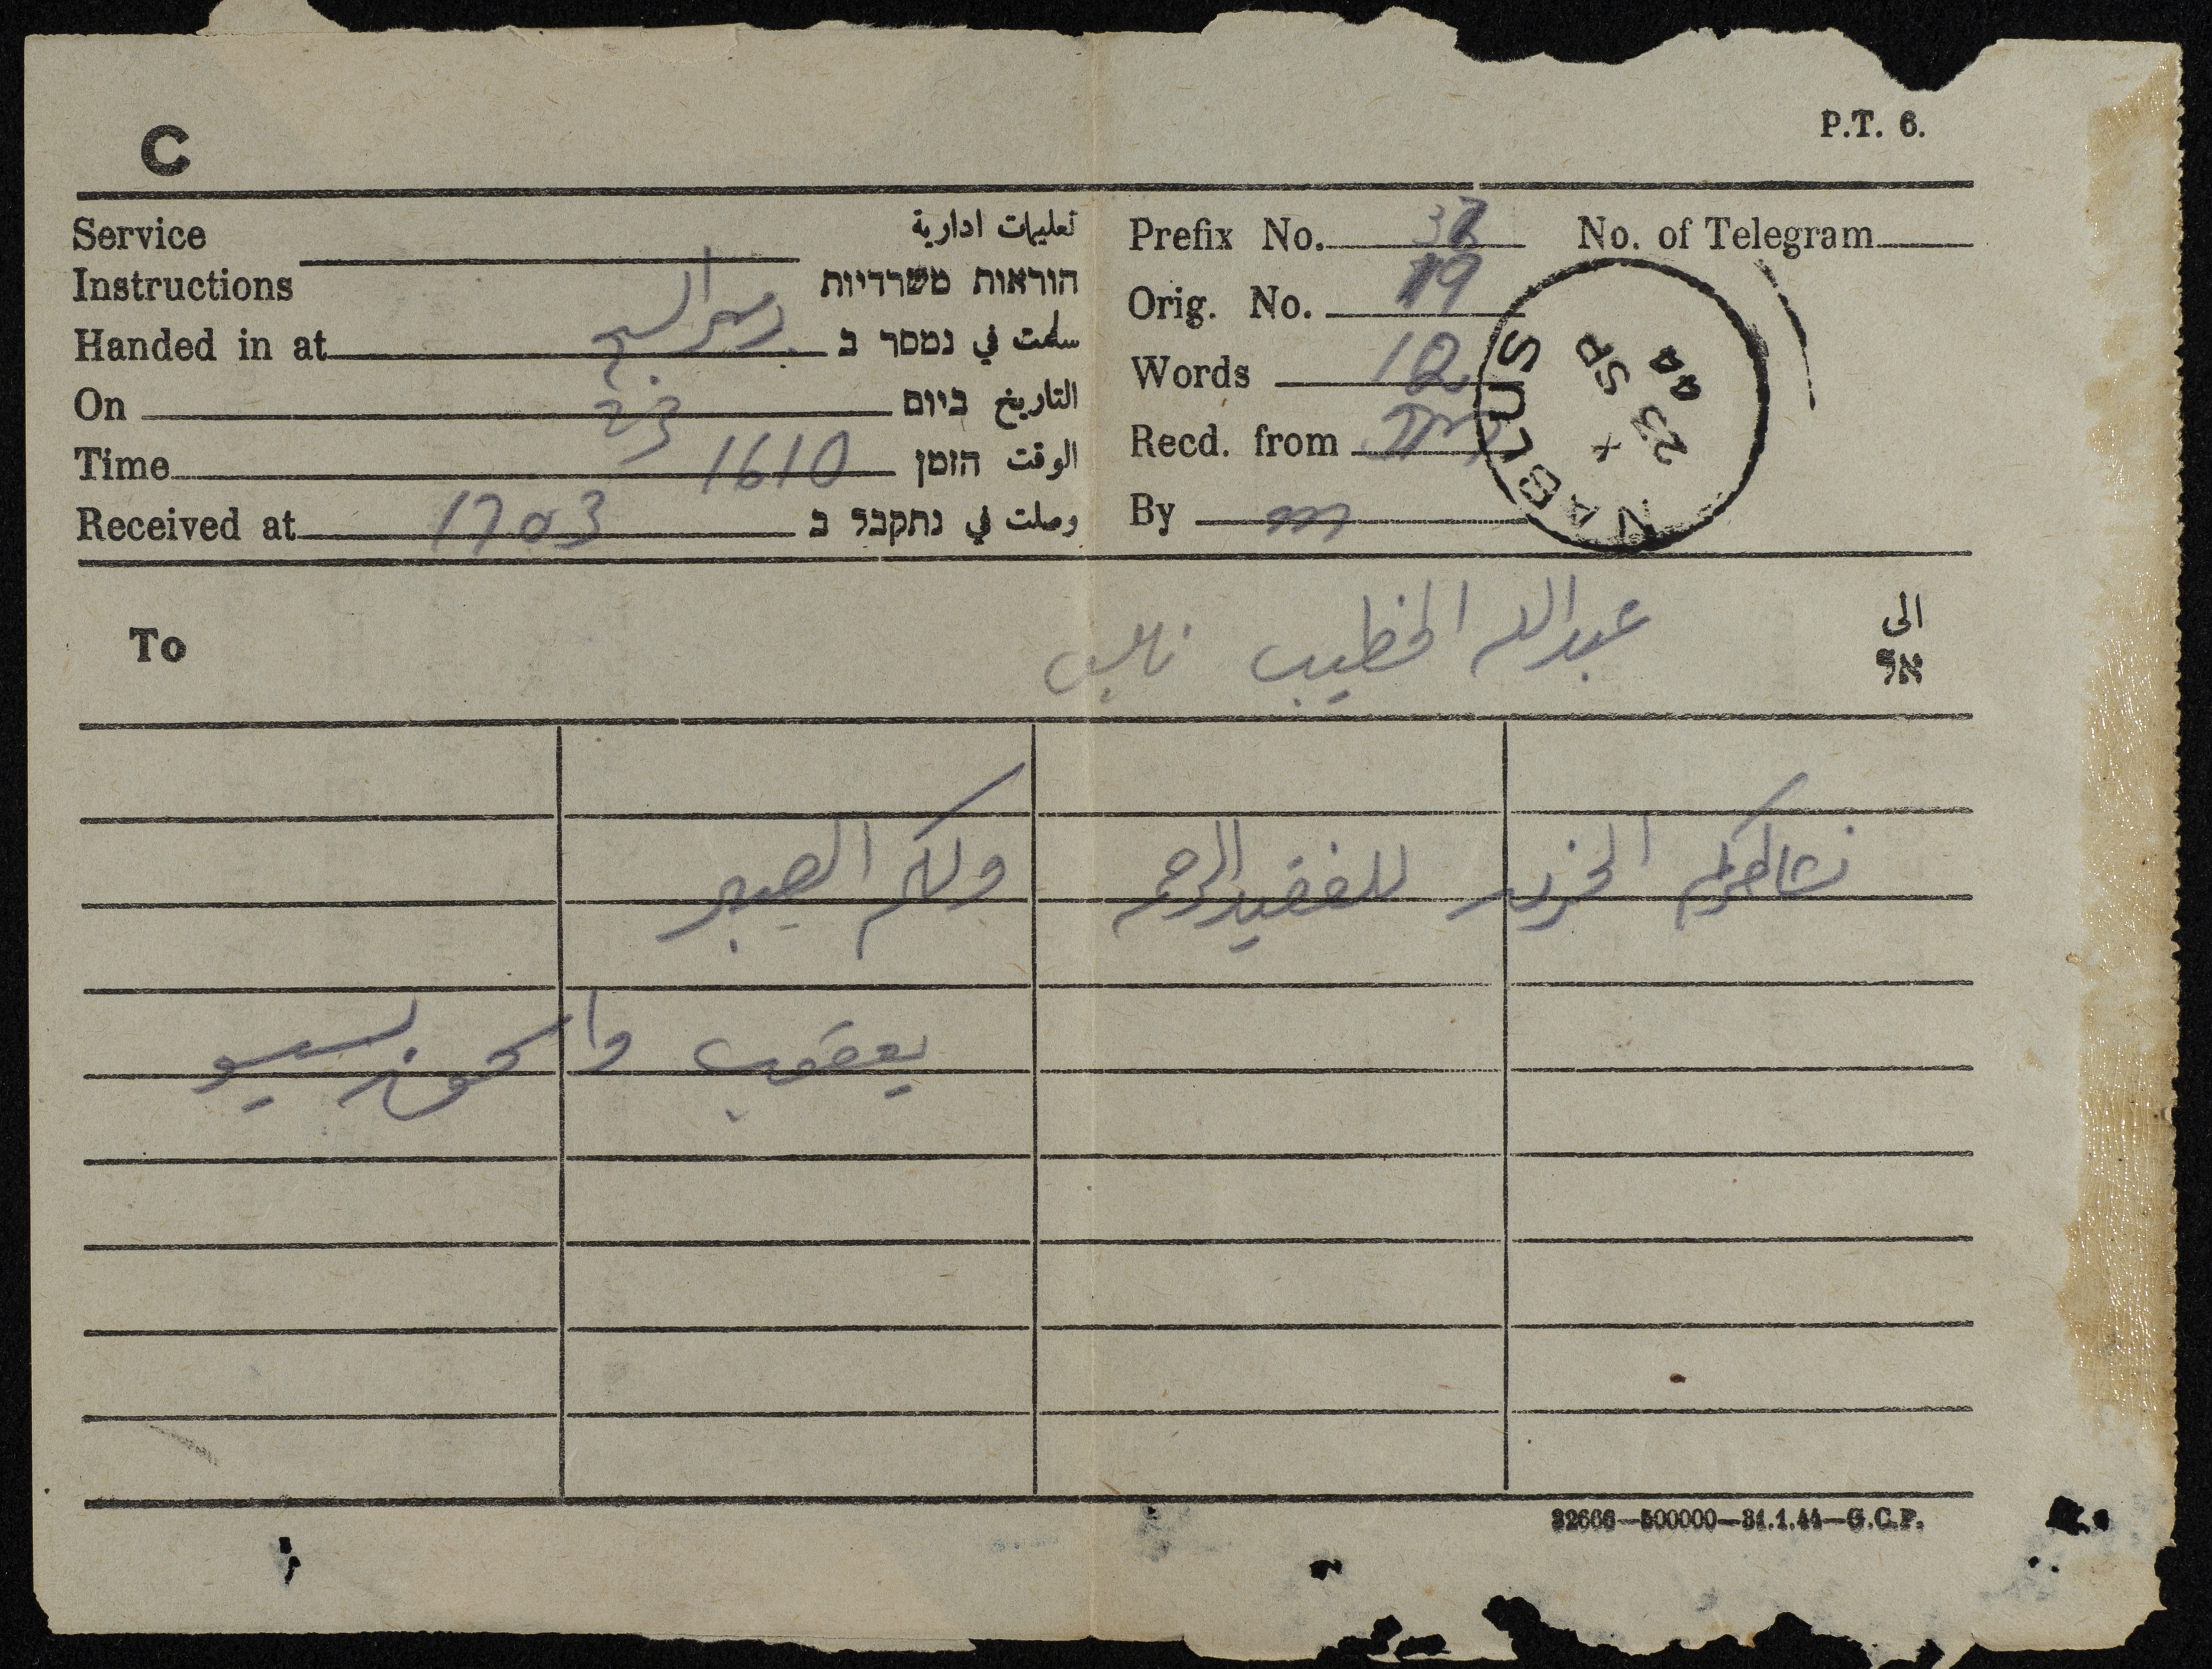 P.T. 6.
C
Service Instructions تعليمات ادارية הוראות משרדיות
Handed in at سلمت في נמסר ב
On 23 التاريخ ביום
Time 1610 الوقت הזמן
Received at 1703 وصلت في נתקבל ב
Prefix No. 37 No. of Telegram
Orig. No. 19
Words 12
Recd. from
By m
NABLUS
X
23 SP
44
To عبدالله الخطيب نابلس الى אל
نشاطركم الحزن للفقيد الرحمة ولكم الصبر
يعقوب
32666—500000—31.1.44—G.C.P.